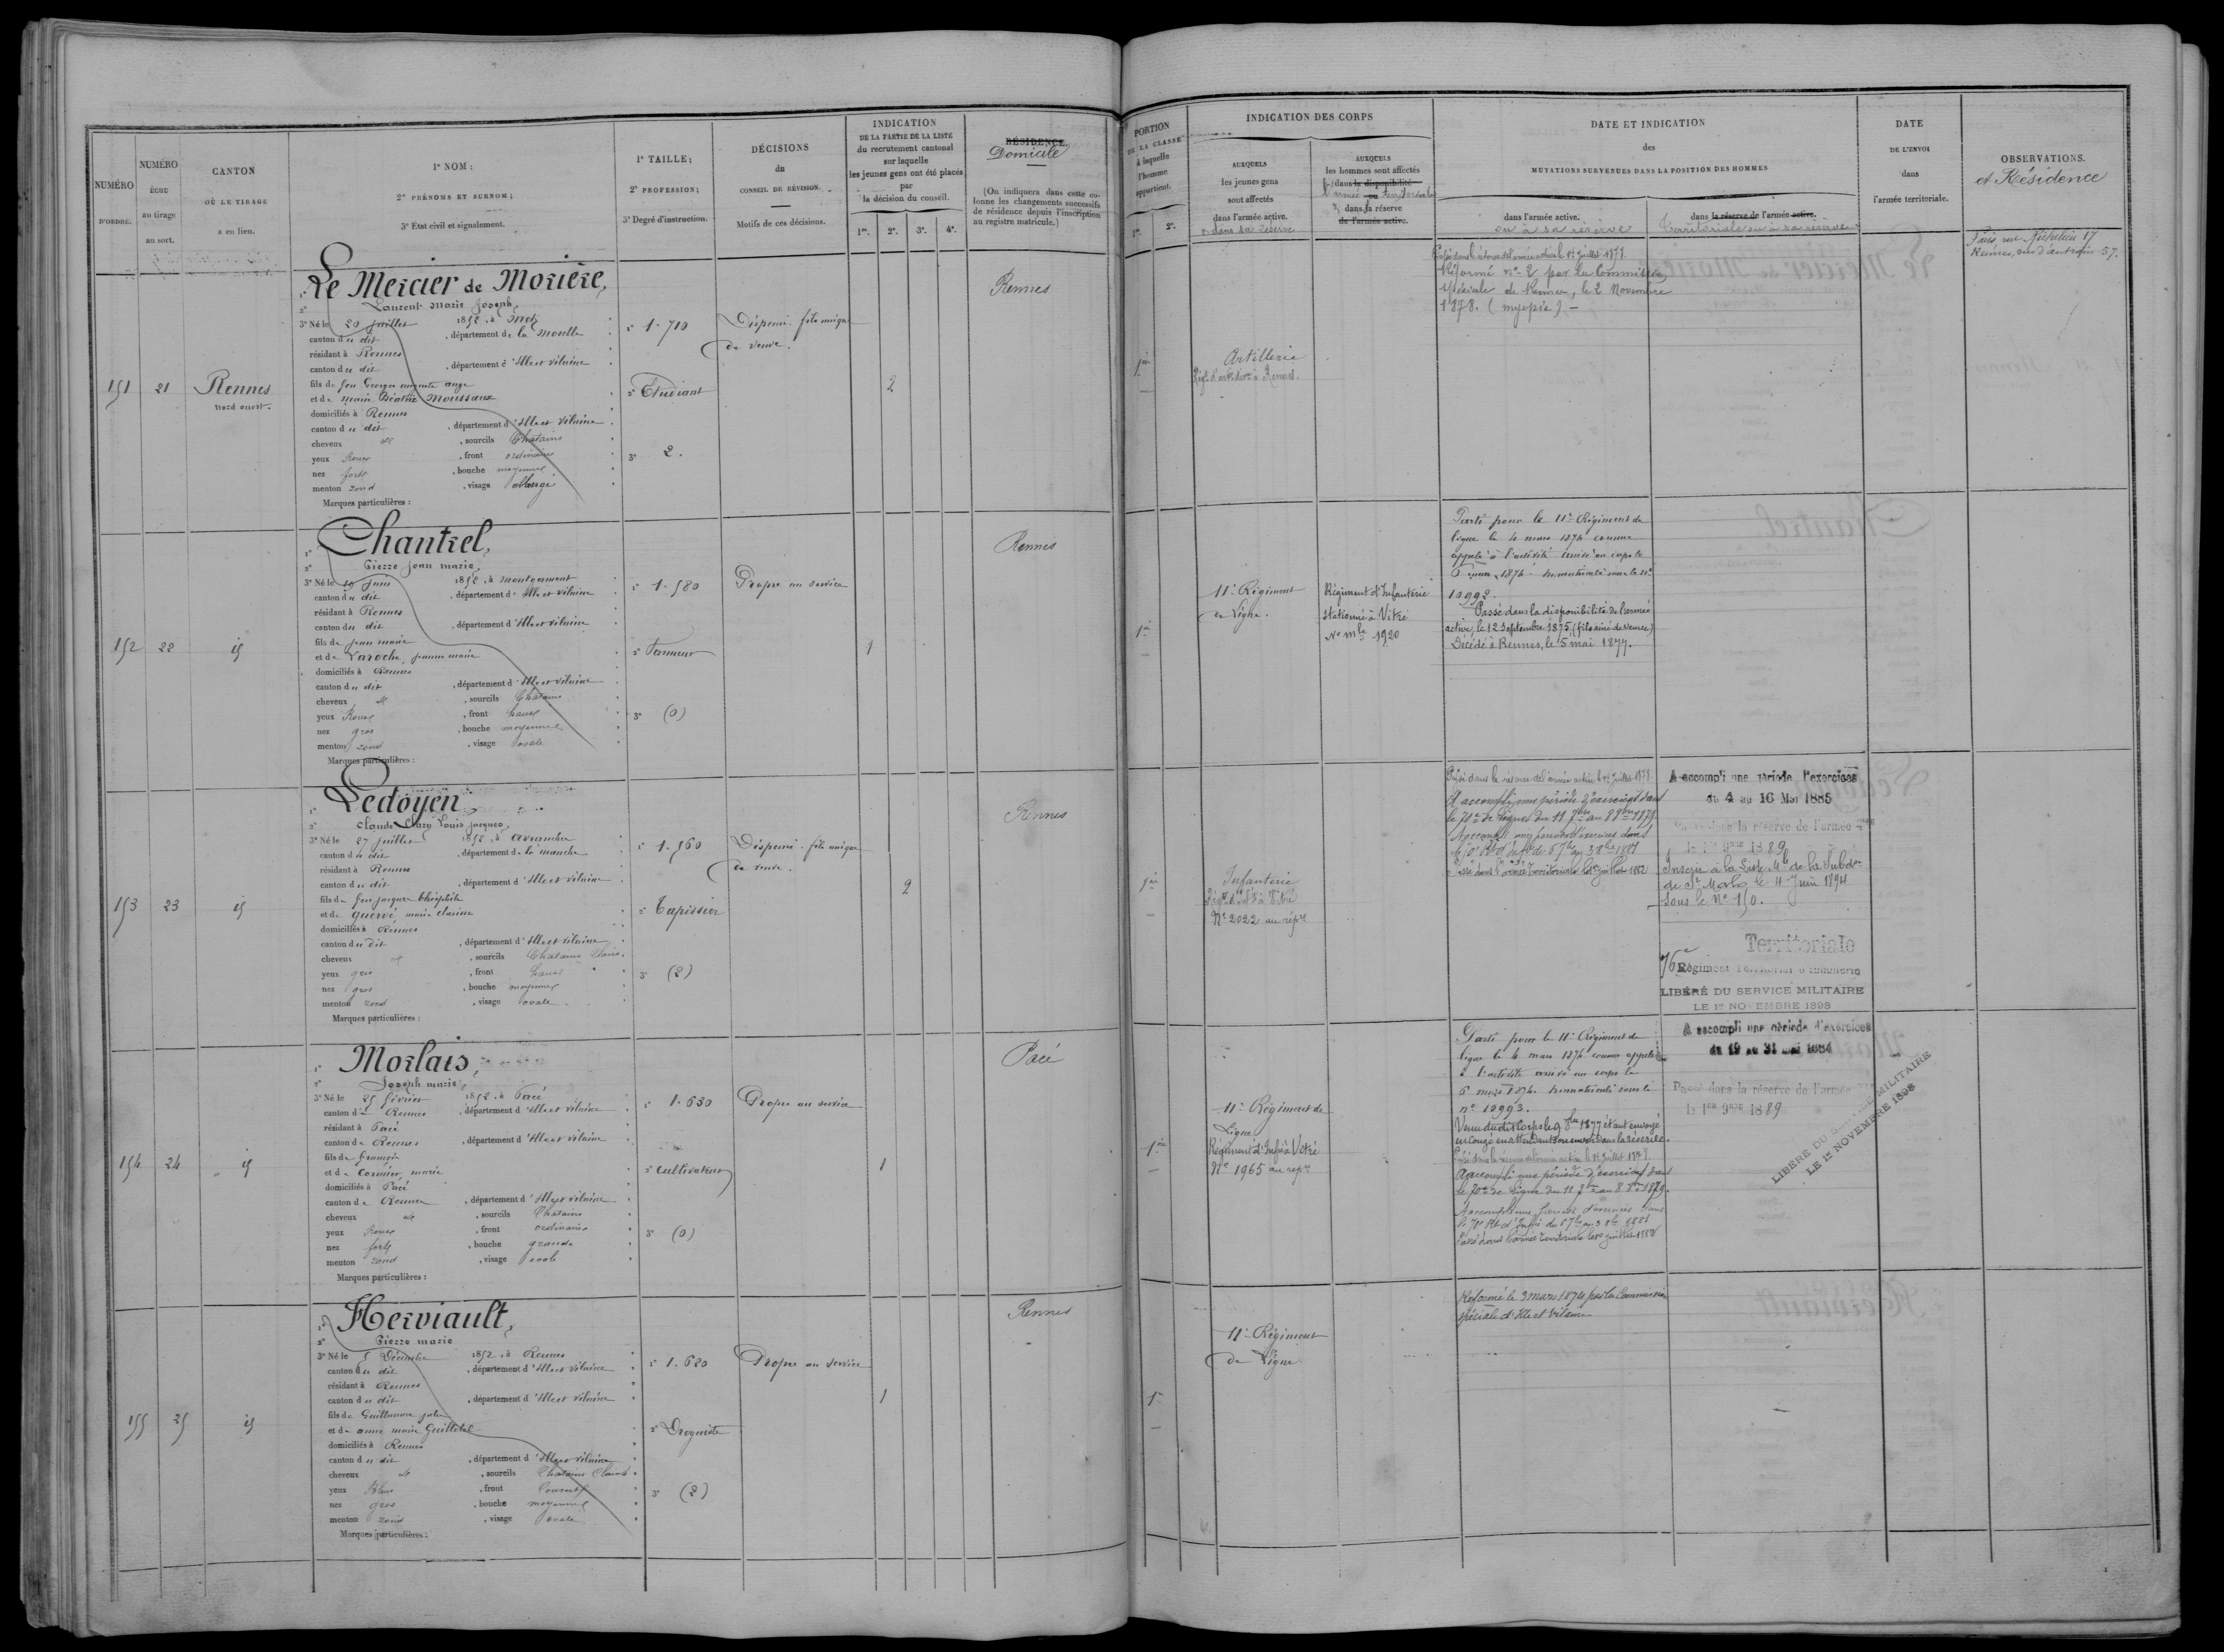 NUMÉRO
D'ORDRE.
NUMÉRO
ÉCHU
au tirage
au sort.
CANTON
OÙ LE TIRAGE
a eu lieu.
1º NOM;
2º PRÉNOMS ET SURNOM;
3º Etat civil et signalement.
1º TAILLE;
2º PROFESSION;
3º Degré d'instruction.
DÉCISIONS
du
CONSEIL DE RÉVISION.
Motifs de ces décisions.
INDICATION
DE LA PARTIE DE LA LISTE
du recrutement cantonal
sur laquelle
les jeunes gens ont été placés
par
la décision du conseil.
1re. 2e. 3e. 4e.
RÉSIDENCE
Domicile
(On indiquera dans cette co-
lonne les changements successifs
de résidence depuis l'inscription
au registre matricule.)
PORTION
DE LA CLASSE
à laquelle
l'homme
appartient.
1re. 2e.
INDICATION DES CORPS
AUXQUELS
les jeunes gens
sont affectés
dans l'armée active.
ou dans sa réserve
AUXQUELS
les hommes sont affectés
dans la disponibilité
armée ou territoriale
dans la réserve
de l'armée active.
DATE ET INDICATION
des
MUTATIONS SURVENUES DANS LA POSITION DES HOMMES
dans l'armée active.
ou à sa réserve
dans la réserve de l'armée active.
Territoriale ou à sa réserve
DATE
DE L'ENVOI
dans
l'armée territoriale.
OBSERVATIONS.
et Résidence
151
21
Rennes
Nord ouest.
Le Mercier de Morière,
2º Laurent Marie Joseph,
3º Né le 20 juillet 1852, à Metz
canton du dit, département de la Moselle
résidant à Rennes
canton du dit, département d'Ille et Vilaine
fils de feu Georges auguste ange
et de Marie Béatrix Moussaux
domiciliés à Rennes
canton du dit, département d'Ille et Vilaine
cheveux et, sourcils Chatains
yeux Roux, front ordinaire
nez fort, bouche moyenne
menton rond, visage allongé
Marques particulières :
1º 1.710
2º Etudiant
3º 2.
Dispensé. fils unique
de veuve.
2
Rennes
1re
Artillerie
Régt d'artie divre à Rennes.
Passé dans la réserve de l'armée active le 1er Juillet 1878.
Réformé nº 2 par la Commission
Spéciale de Rennes, le 2 Novembre
1878. (myopie) –
Paris, rue Richelieu 17
Rennes, rue d'antrain 57.
152
22
id
Chantrel,
2º Pierre Jean marie,
3º Né le 19 Juin 1852, à Montgermont
canton du dit, département d'Ille et Vilaine
résidant à Rennes
canton du dit, département d'Ille et Vilaine
fils de Jean marie
et de Laroche, jeanne marie
domiciliés à Rennes
canton du dit, département d'Ille et Vilaine
cheveux et, sourcils Chatains
yeux Roux, front haut
nez gros, bouche moyenne
menton rond, visage ovale
Marques particulières :
1º 1.580
2º Tanneur
3º (0)
Propre au service
1
Rennes
1re
11e Régiment
de Ligne.
Régiment d'Infanterie
stationné à Vitré
No mle 1920
Parti pour le 11e Régiment de
ligne le 4 mars 1874 comme
appelé à l'activité arrivé au corps le
6 mars 1874. Immatriculé sous le nº
10992.
Passé dans la disponibilité de l'armée
active, le 12 Septembre 1875, (fils aîné de veuve)
Décédé à Rennes, le 5 mai 1877.
153
23
id
Ledoyen
2º Claude Louis jacques,
3º Né le 27 juillet 1852, à avranches
canton du dit, département de la manche
résidant à Rennes
canton du dit, département d'Ille et Vilaine
fils de feu jacques théophile
et de Guervé, marie clarisse
domiciliés à Rennes
canton du dit, département d'Ille et Vilaine
cheveux et, sourcils Chatains Clairs.
yeux gris, front haut
nez gros, bouche moyenne
menton rond, visage ovale.
Marques particulières :
1º 1.560
2º Tapissier
3º (2)
Dispensé. fils unique
de veuve.
2
Rennes
1re
Infanterie
Régt d'Infie à Vitré
Nº 2022 au répre
Passé dans la réserve de l'armée active le 1er Juillet 1878.
A accompli une période d'exercices dans
le 70e de Ligne du 11 7bre au 8 8bre 1879.
A accompli une période d'exercices dans
le 70e Rt d'Infie du 6 7bre au 3 8bre 1881
Passé dans l'armée territoriale le 1er juillet 1882
A accompli une période d'exercices
du 4 au 16 Mai 1885
Passé dans la réserve de l'armée
le 1er 9bre 1889
Inscrit à la Liste Mle de la Subdon
de St Malo le 4 Juin 1894
sous le Nº 150.
Territoriale
76e Régiment Territorial d'Infanterie
LIBÉRÉ DU SERVICE MILITAIRE
LE 1er NOVEMBRE 1898
154
24
id
Morlais,
2º Joseph marie,
3º Né le 25 février 1852, à Pacé
canton de Rennes, département d'Ille et Vilaine
résidant à Pacé
canton de Rennes, département d'Ille et Vilaine
fils de françois
et de Cormier, marie
domiciliés à Pacé
canton de Rennes, département d'Ille et Vilaine
cheveux et, sourcils Chatains
yeux Roux, front ordinaire
nez fort, bouche grande
menton rond, visage ovale
Marques particulières :
1º 1.630
2º cultivateur
3º (0)
Propre au service
1
Pacé
1re
11e Régiment de
Ligne
Régiment d'Infie à Vitré
Nº 1965 au répre
Parti pour le 11e Régiment de
ligne le 4 mars 1874 comme appelé
à l'activité arrivé au corps le
6 mars 1874. Immatriculé sous le
nº 10993.
Venu du dit Corps le 9 8bre 1877 étant envoyé
en congé en attendant son envoi dans la réserve.
Passé dans la réserve de l'armée active le 1er Juillet 1878
A accompli une période d'exercices dans
le 70e de Ligne du 11 7bre au 8 8bre 1879.
A accompli une période d'exercices dans
le 70e Rt d'Infie du 6 7bre au 3 8bre 1881
Passé dans l'armée territoriale le 1er juillet 1882
A accompli une période d'exercices
du 19 au 31 mai 1884
Passé dans la réserve de l'armée
le 1er 9bre 1889
LIBÉRÉ DU SERVICE MILITAIRE
LE 1er NOVEMBRE 1898
155
25
id
Herviault,
2º Pierre marie
3º Né le 5 Décembre 1852, à Rennes
canton du dit, département d'Ille et Vilaine
résidant à Rennes
canton du dit, département d'Ille et Vilaine
fils de Guillaume
et de anne marie Guillotel
domiciliés à Rennes
canton du dit, département d'Ille et Vilaine
cheveux et, sourcils Chatains Clairs
yeux Bleus, front Couvert
nez gros, bouche moyenne
menton rond, visage ovale
Marques particulières :
1º 1.620
2º Droguiste
3º (2)
Propre au service
1
Rennes
1re
11e Régiment
de Ligne
Réformé le 3 mars 1874 par la Commission
spéciale d'Ille et Vilaine